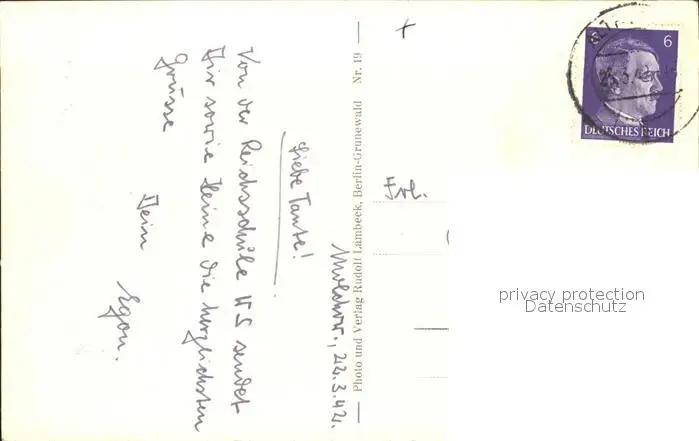 Liebe Tante!
Von der Reichsschule sendet
Dir sowie Heine die herzlichsten
Grüsse
Dein
Egon.
22.3.42.
Photo und Verlag Rudolf Lambeck, Berlin-Grunewald Nr. 19
Frl.
6
DEUTSCHES REICH
privacy protection
Datenschutz